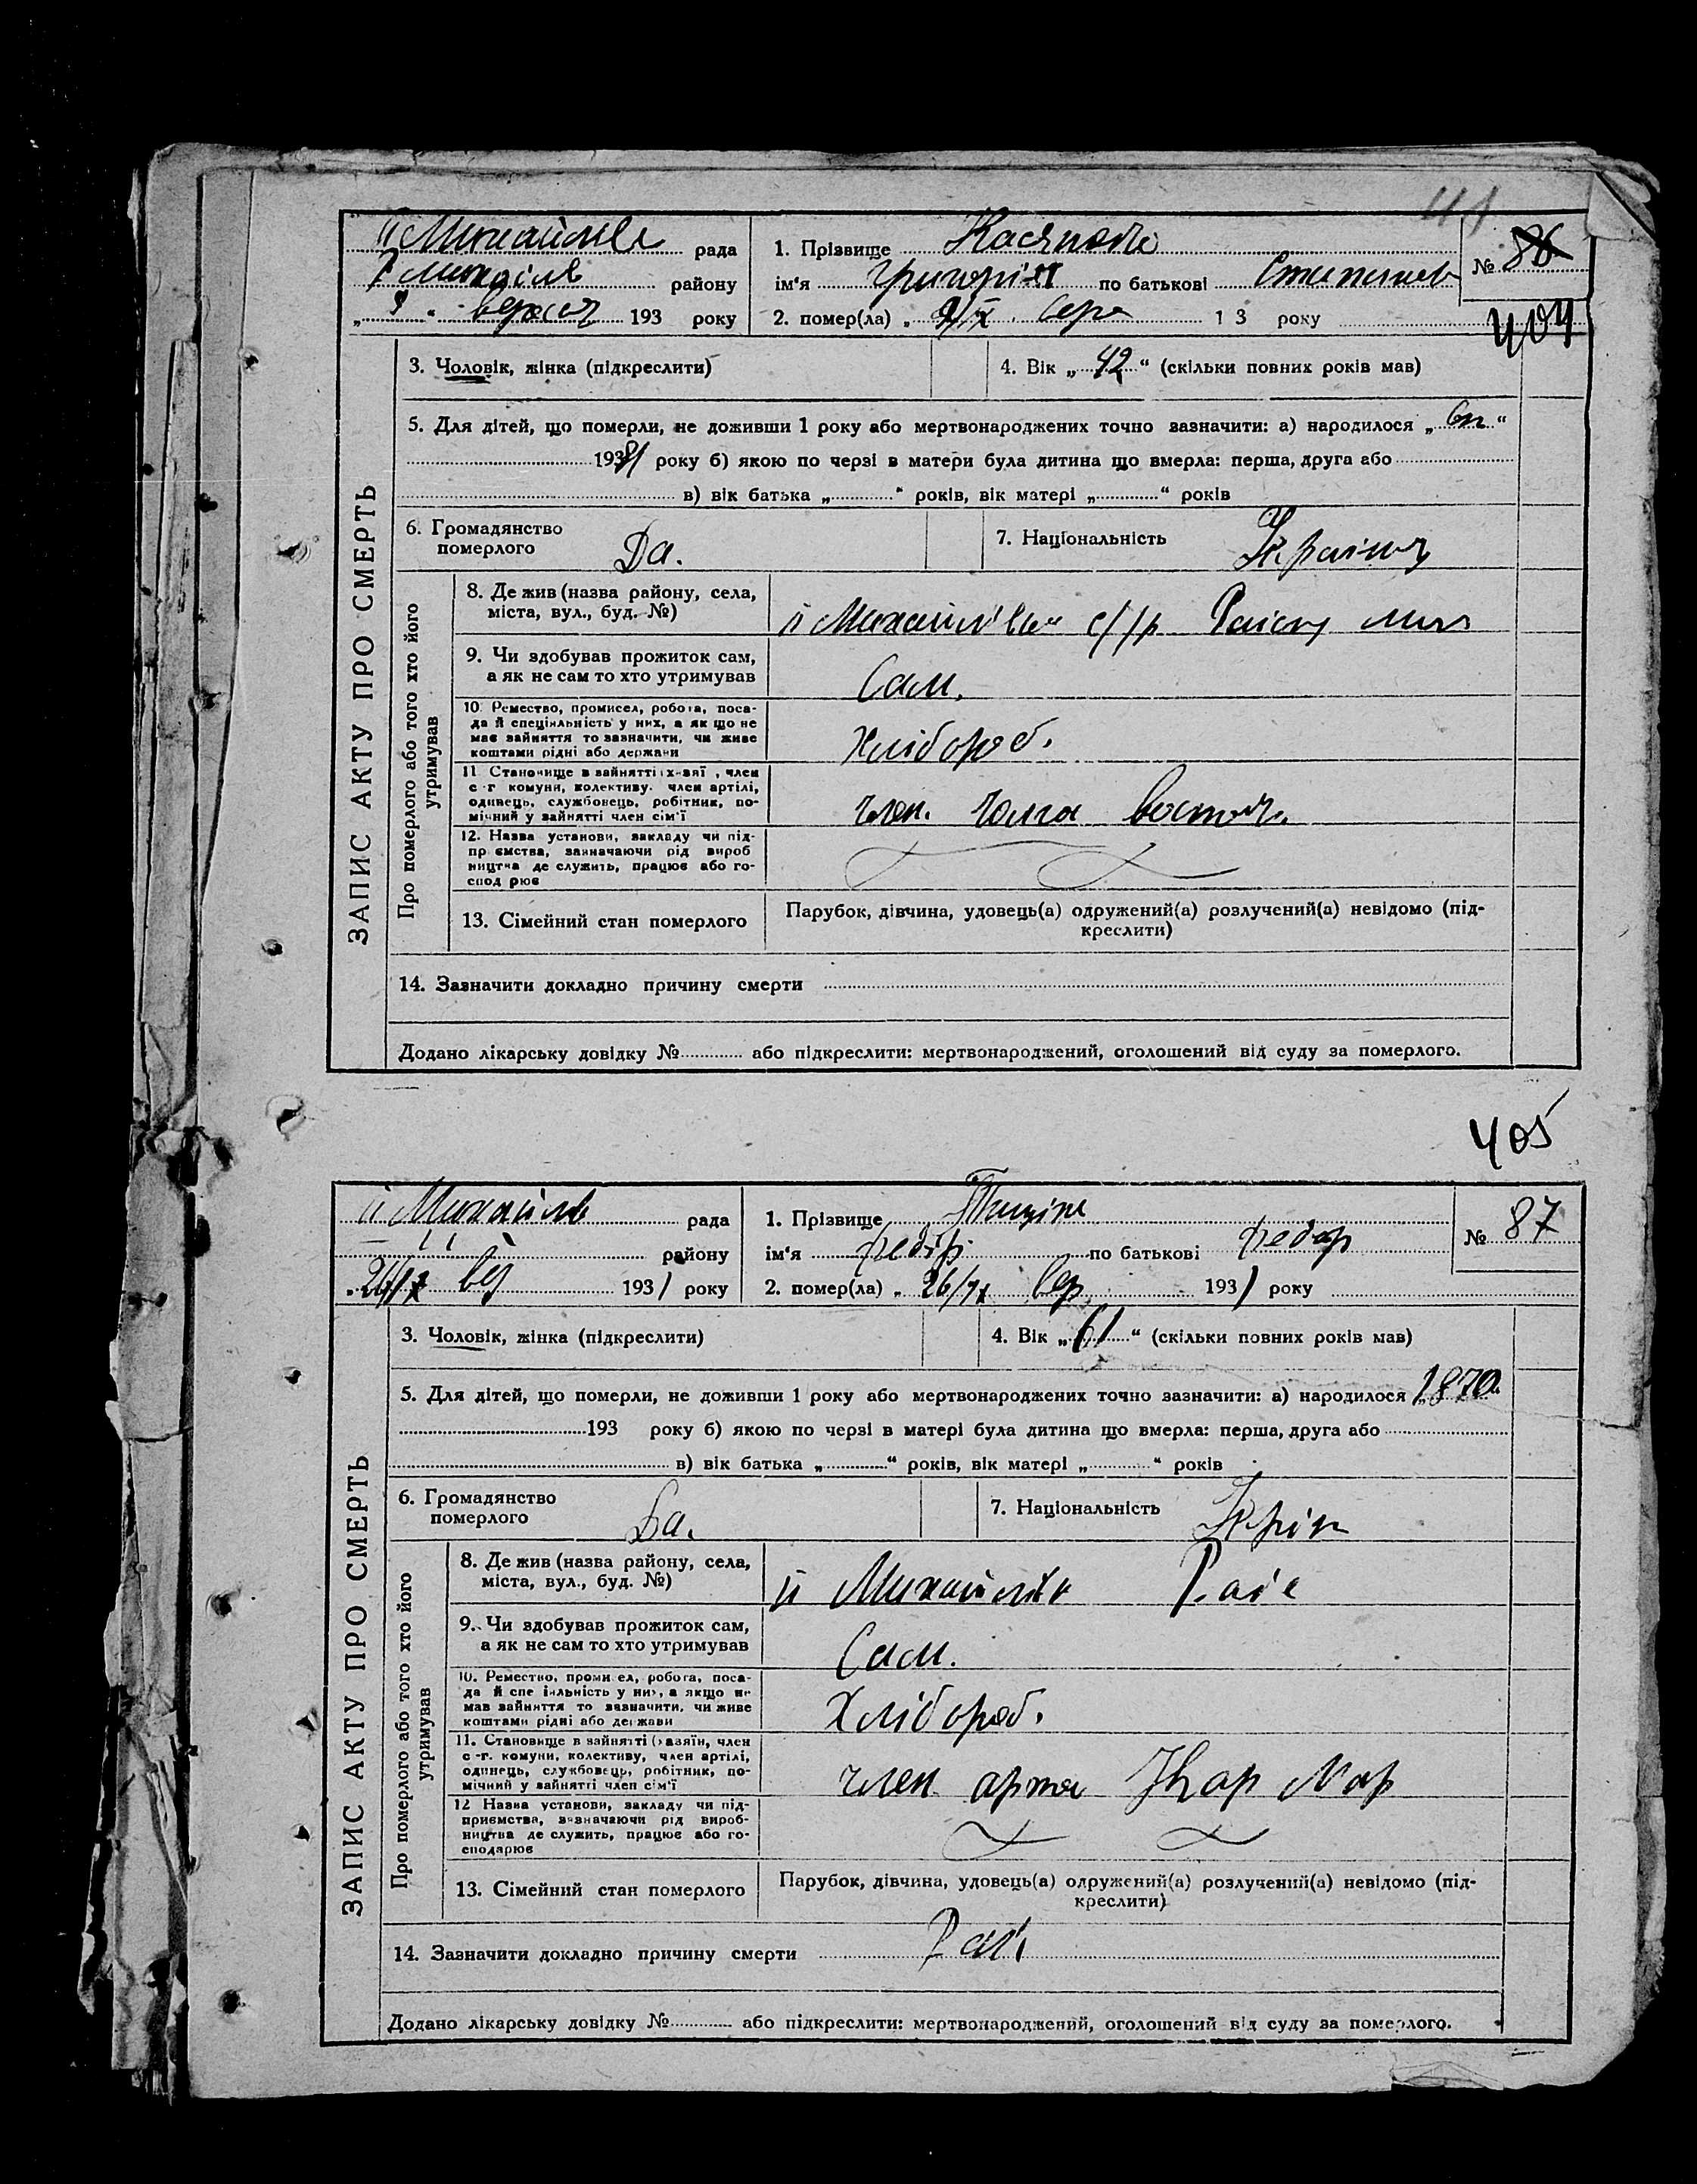 41
ІІ Михайлівк рада
району
„ 9 “ вересня 193 року
1. Прізвище
ім'я Григорій по батькові Степанов
2. помер(ла) „ 9/ІХ 1 3 року
№ 86
404
ЗАПИС АКТУ ПРО СМЕРТЬ
3. Чоловік, жінка (підкреслити)
4. Вік „ 42 “ (скільки повних років мав)
5. Для дітей, що померли, не доживши 1 року або мертвонароджених точно зазначити: а) народилося „ “
1931 року б) якою по черзі в матери була дитина що вмерла: перша, друга або
в) вік батька „ “ років, вік матері „ “ років
6. Громадянство
померлого Да.
7. Національність Україн
Про померлого або того хто його
утримував
8. Де жив (назва району, села,
міста, вул., буд. №)
ІІ Михайлівк с/р
9. Чи здобував прожиток сам,
а як не сам то хто утримував
Сам.
10. Ремество, промисел, робота, поса-
да й спеціяльність у них, а як що не
має зайняття то зазначити, чи живе
коштами рідні або держави
Хлібороб.
11 Становище в зайнятті (х-зяї , член
с-г комуни, колективу, член артілі,
одинець, службовець, робітник, по-
мічний у зайнятті член сім'ї
член.
12. Назва установи, закладу чи під-
пр ємства, зазначаючи рід вироб
ництва де служить, працює або го-
спод рює
13. Сімейний стан померлого
Парубок, дівчина, удовець(а) одружений(а) розлучений(а) невідомо (під-
креслити)
14. Зазначити докладно причину смерти
Додано лікарську довідку № або підкреслити: мертвонароджений, оголошений від суду за померлого.
405
ІІ Михайлів рада
— ІІ — району
„ 26/ІХ вер 1931 року
1. Прізвище
ім'я Федір по батькові Федор
2. помер(ла) „ 26/ІХ вер. 1931 року
№ 87
ЗАПИС АКТУ ПРО СМЕРТЬ
3. Чоловік, жінка (підкреслити)
4. Вік „ 61 “ (скільки повних років мав)
5. Для дітей, що померли, не доживши 1 року або мертвонароджених точно зазначити: а) народилося „ 1870
193 року б) якою по черзі в матері була дитина що вмерла: перша, друга або
в) вік батька „ “ років, вік матері „ “ років
6. Громадянство
померлого Да.
7. Національність Украін
Про померлого або того хто його
утримував
8. Де жив (назва району, села,
міста, вул., буд. №)
ІІ Михайлівк
9. Чи здобував прожиток сам,
а як не сам то хто утримував
Сам.
10. Ремество, проми ел, робота, поса-
да й спе іяльність у них, а якщо не
має зайняття то зазначити, чи живе
коштами рідні або держави
Хлібороб.
11. Становище в зайнятті (хазяїн, член
с-г. комуни, колективу, член артілі,
одинець, службовець, робітник, по-
мічний у зайнятті член сім'ї
член
12 Назва установи, закладу чи під-
приємства, зазначаючи рід вироб-
ництва де служить, працює або го-
сподарює
13. Сімейний стан померлого
Парубок, дівчина, удовець(а) одружений(а) розлучений(а) невідомо (під-
креслити)
14. Зазначити докладно причину смерти
Додано лікарську довідку № або підкреслити: мертвонароджений, оголошений від суду за померлого.